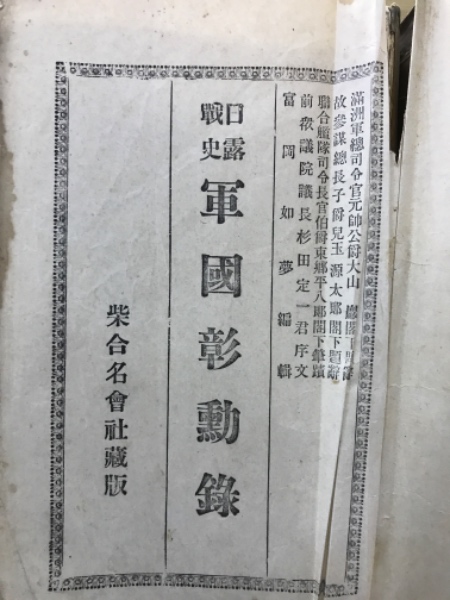 滿洲軍總司令官元帥公爵大山 巖閣下題辭
故參謀總長子爵兒玉源太郎閣下題辭
聯合艦隊司令長官伯爵東鄉平八郎閣下筆蹟
前衆議院議長杉田定一君序文
富岡如夢編輯
日露戰史
軍國彰勳錄
柴合名會社藏版